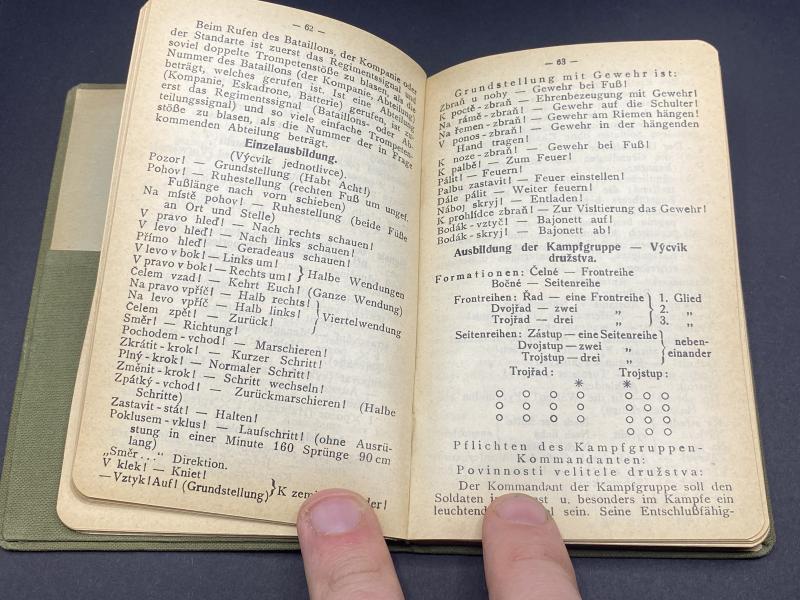 — 62 —
Beim Rufen des Bataillons, der Kompanie oder
der Standarte ist zuerst das Regimentssignal und
soviel doppelte Trompetenstöße zu blasen, als die
Nummer des Bataillons (der Kompanie, Abteilung)
beträgt, welches gerufen ist. Ist eine Abteilung
(Kompanie, Eskadrone, Batterie) gerufen, ist zu-
erst das Regimentssignal (Bataillons- oder Ab-
teilungssignal) und so viele einfache Trompeten-
stöße zu blasen, als die Nummer der in Frage
kommenden Abteilung beträgt.
Einzelausbildung.
(Výcvik jednotlivce).
Pozor! — Grundstellung (Habt Acht!)
Pohov! — Ruhestellung (rechten Fuß um ungef.
Fußlänge nach vorn schieben)
Na místě pohov! — Ruhestellung (beide Füße
an Ort und Stelle)
V pravo hleď! — Nach rechts schauen!
V levo hleď! — Nach links schauen!
Přímo hleď! — Geradeaus schauen!
V levo v bok! — Links um! } Halbe Wendungen
V pravo v bok! — Rechts um!
Čelem vzad! — Kehrt Euch! (Ganze Wendung)
Na pravo vpříč! — Halb rechts! } Viertelwendung
Na levo vpříč — Halb links!
Čelem zpět! — Zurück!
Směr! — Richtung!
Pochodem-vchod! — Marschieren!
Zkrátit-krok! — Kurzer Schritt!
Plný-krok! — Normaler Schritt!
Změnit-krok! — Schritt wechseln!
Zpátky-vchod! — Zurückmarschieren! (Halbe
Schritte)
Zastavit-stát! — Halten!
Poklusem-vklus! — Laufschritt! (ohne Ausrü-
stung in einer Minute 160 Sprünge 90 cm
lang)
„Směr . . ." Direktion.
V klek! — Kniet!
—Vztyk! Auf! (Grundstellung) } K zemi der!
— 63 —
Grundstellung mit Gewehr ist:
Zbraň u nohy — Gewehr bei Fuß!
K poctě-zbraň! — Ehrenbezeugung mit Gewehr!
Na rámě-zbraň! — Gewehr auf die Schulter!
Na řemen-zbraň! — Gewehr am Riemen hängen!
V ponos-zbraň! — Gewehr in der hängenden
Hand tragen!
K noze-zbraň! — Gewehr bei Fuß!
K palbě! — Zum Feuer!
Pálit! — Feuern!
Palbu zastavit! — Feuer einstellen!
Dále pálit — Weiter feuern!
Náboj skryj! — Entladen!
K prohlídce zbraň! — Zur Visitierung das Gewehr!
Bodák-vztyč! — Bajonett auf!
Bodák-skryj! — Bajonett ab!
Ausbildung der Kampfgruppe — Výcvik
družstva.
Formationen: Čelné — Frontreihe
Bočné — Seitenreihe
Frontreihen: Řad — eine Frontreihe } 1. Glied
Dvojřad — zwei „ 2. „
Trojřad — drei „ 3. „
Seitenreihen: Zástup — eine Seitenreihe } neben-
Dvojstup — zwei „ einander
Trojstup — drei „
Trojřad: Trojstup:
Pflichten des Kampfgruppen-
Kommandanten:
Povinnosti velitele družstva:
Der Kommandant der Kampfgruppe soll den
Soldaten u. besonders im Kampfe ein
leuchtend sein. Seine Entschlußfähig-